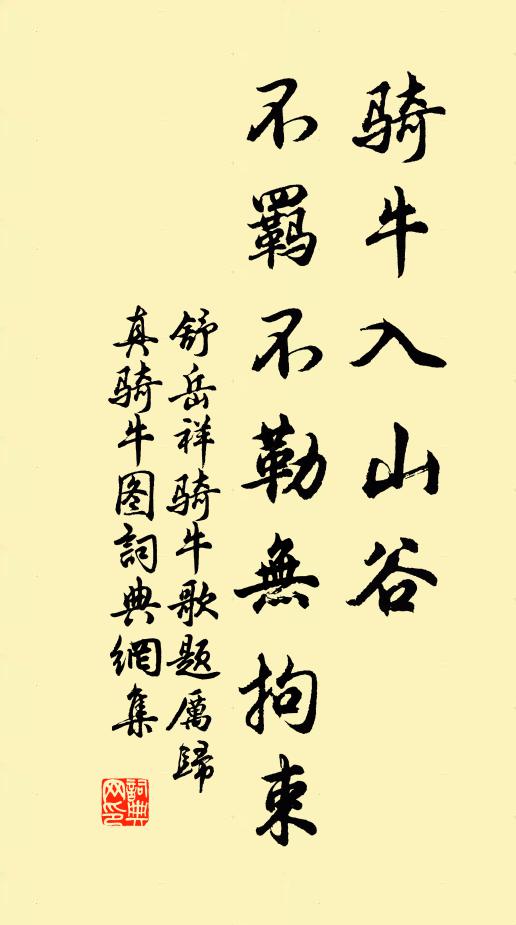 骑牛入山谷
不羁不勒無拘束
舒岳祥骑牛歌题厲歸
真骑牛图詞典網集
詞典
网印